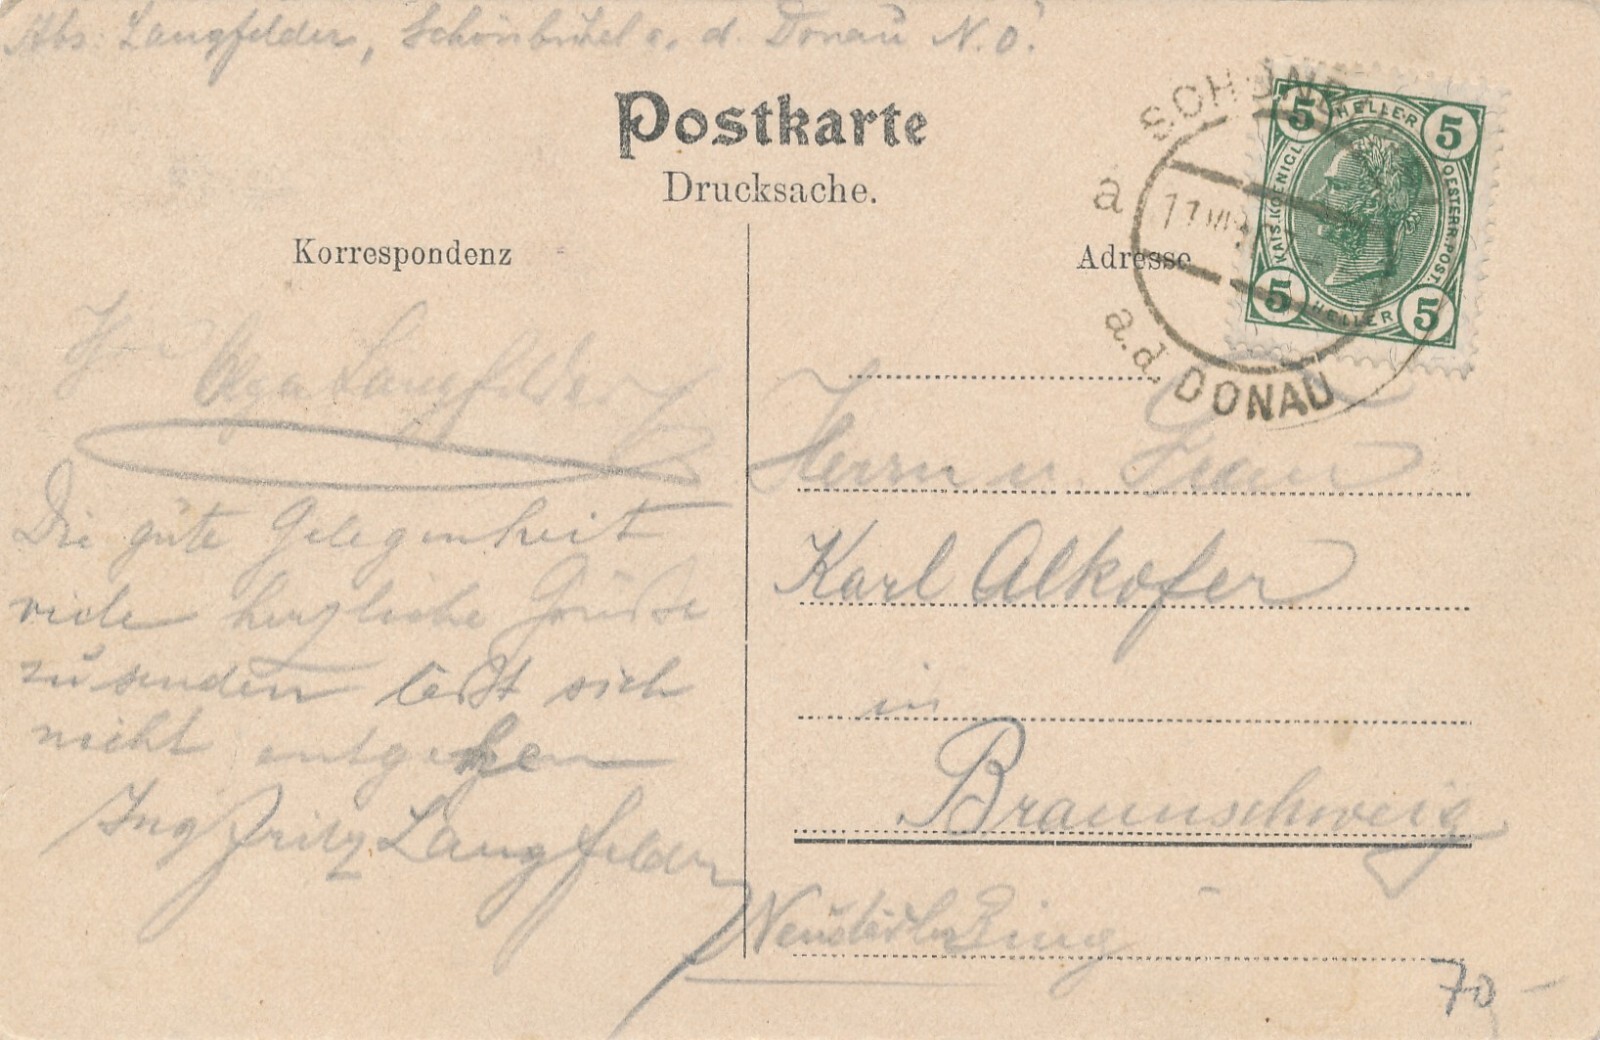 Abs. Langfelder, Schönbühel a. d. Donau N.Ö.
Postkarte
Drucksache.
Korrespondenz
Adresse
SCHÖNB
a
a.d. DONAU
5 HELLER 5
KAIS. KOENIGL. OESTERR. POST.
5 HELLER 5
Olga Langfelder
Die gute Gelegenheit
viele herzliche Grüße
zu senden läßt sich
nicht entgehen
Ing Fritz Langfelder
Herrn u. Frau
Karl Alkofer
in
Braunschweig
70